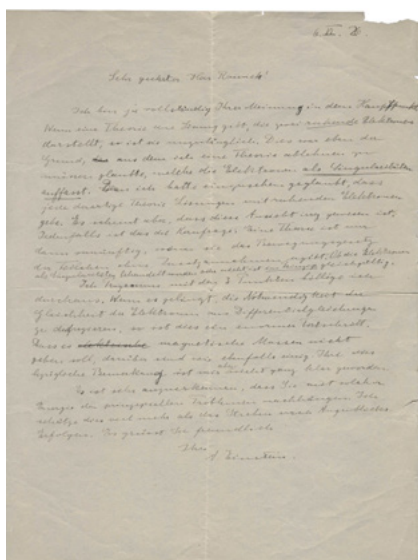 Sehr geehrter Herr
Ich bin ja vollständig Ihrer Meinung in dem Hauptpunkt
Wenn eine Theorie eine Lösung gibt, die zwei ruhende Elektronen
darstellt, so ist sie unzulänglich. Dies war eben der
Grund, aus dem ich eine Theorie ablehnen zu
müssen glaubte, welche die Elektronen als Singularitäten
auffasst. ich hatte geglaubt, dass
jede derartige Theorie Lösungen mit ruhenden Elektronen
gebe. Es scheint aber, dass diese Ansicht irrig gewesen ist,
Jedenfalls ist das die Hauptfrage: Eine Theorie ist nur
dann vernünftig, wenn sie das Bewegungsgesetz
der ohne
Ich mit
durchaus. Wenn es gelingt, die Notwendigkeit der
Gleichheit der Elektronen aus Differentialgleichungen
zu deduzieren, so ist dies ein enormer Fortschritt.
Dass es magnetische Massen nicht
geben soll, darüber sind wir ebenfalls einig. Ihre
bezügliche Bemerkung ist mir nicht ganz klar geworden.
Es ist sehr anzuerkennen, dass Sie mit solcher
Energie den prinzipiellen Problemen nachhängen. Ich
schätze dies viel mehr als das Haschen nach
Erfolgen. Es grüsst Sie freundlich
Ihr
A. Einstein.